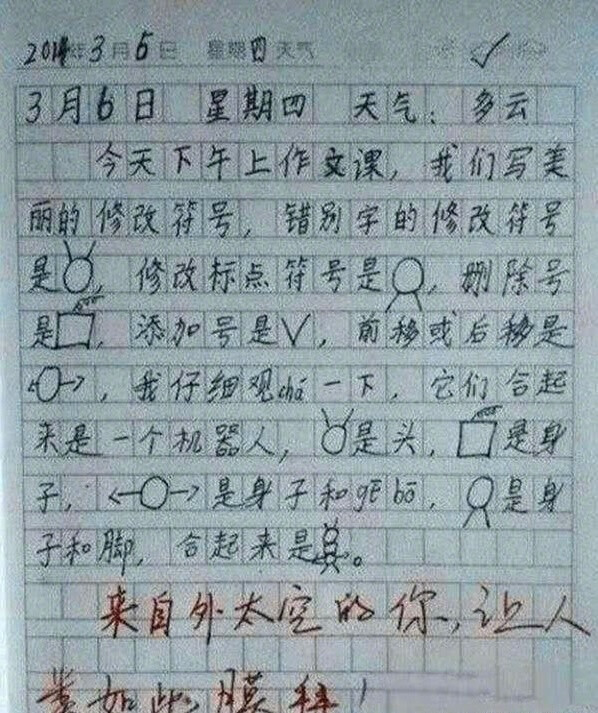 2014年3月6日 星期四 天气
3月6日 星期四 天气：多云
今天下午上作文课，我们写美
丽的修改符号，错别字的修改符号
是，修改标点符号是，删除号
是，添加号是∨，前移或后移是
←○→，我仔细观chá一下，它们合起
来是一个机器人，是头，是身
子，←○→是身子和gē bō，是身
子和脚，合起来是。
来自外太空的你，让人
如此膜拜！